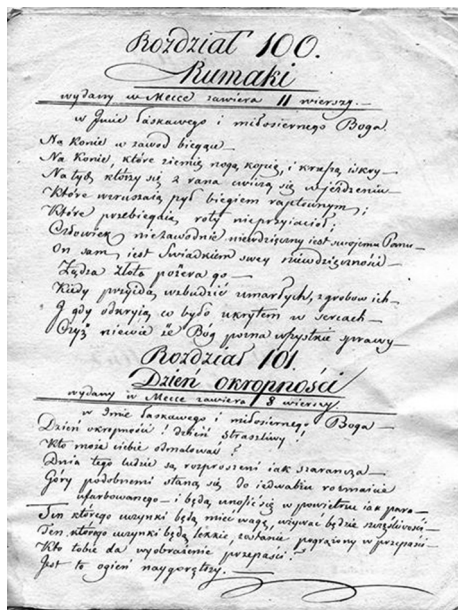 Rozdział 100.
Rumaki
wydany w Mecce zawiera 11 wierszy.—
w Imie łaskawego i miłosiernego Boga.
Na konie w zawod biegące—
Na konie, które ziemię nogą kopią, i krzeszą iskry—
Na tych, którzy się z rana ćwiczą się w jeżdzeniu—
Które wzruszaią pył biegiem raptownym;
Które przebiegaią roty nieprzyiaciół;
Człowiek niezawodnie niewdzięczny iest swojemu Panu—
On sam iest Swiadkiem swey niewdzięczności—
Żądza złota pożera go—
Kiedy przyidą wzbudzić umarłych, z grobow ich—
I gdy odkryią co było ukrytem w sercach—
Czyż niewie że Bóg pozna wszystkie sprawy—
Rozdział 101.
Dzień okropności
wydany w Mecce zawiera 8 wierszy.
w Imie łaskawego i miłosiernego Boga—
Dzień okropności! dzień straszliwy!
Kto może ciebie odmalować?
Dnia tego ludzie są rozproszeni iak szarańcza—
Góry podobnemi staną się do iedwabiu rozmaicie
ufarbowanego—i będą unosić się w powietrzu iak para—
Ten którego uczynki będą mieć wagę, używać będzie szczęśliwości—
Ten, którego uczynki będą lekkie, zostanie pogrążony w przepaści—
Kto tobie da wyobrażenie przepaści?
Jest to ogień naygorętszy.—